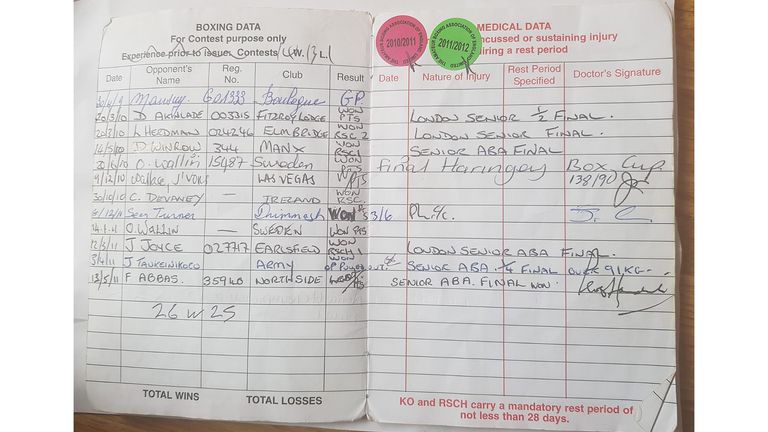 BOXING DATA
For Contest purpose only
Experience prior to issue: Contests 4W. 13 L1
Date Opponent's Name Reg. No. Club Result
G01333 Boulogne GP
20/3/10 D AKINLADE 003315 FITZROY LODGE WON PTS
20/3/10 L HERDMAN 024246 ELMBRIDGE WON RSC 2
14/5/10 D WINROW 344 MANX WON RSC1
O. Wallin 15487 Sweden WON PTS
9/12/10 LAS VEGAS WPTS
30/10/10 C. DEVANEY — IRELAND WON RSC
Sean Turner Drimnagh WON
O. WALLIN — SWEDEN WON PTS
12/3/11 J JOYCE 027717 EARLSFIELD WON RSCH 1
3/4/11 ARMY OP Pulled out.
13/5/11 F ABBAS. 35940 NORTHSIDE
26 W 25
TOTAL WINS TOTAL LOSSES
THE AMATEUR BOXING ASSOCIATION OF ENGLAND LIMITED
2010/2011
THE AMATEUR BOXING ASSOCIATION OF ENGLAND LIMITED
2011/2012
MEDICAL DATA
concussed or sustaining injury
requiring a rest period
Date Nature of Injury Rest Period Specified Doctor's Signature
LONDON SENIOR ½ FINAL.
LONDON SENIOR FINAL.
SENIOR ABA FINAL
final Haringey Box Cup
138/90
3/6
LONDON SENIOR ABA FINAL.
SENIOR ABA ¼ FINAL OVER 91KG.
SENIOR ABA. FINAL WON.
KO and RSCH carry a mandatory rest period of
not less than 28 days.